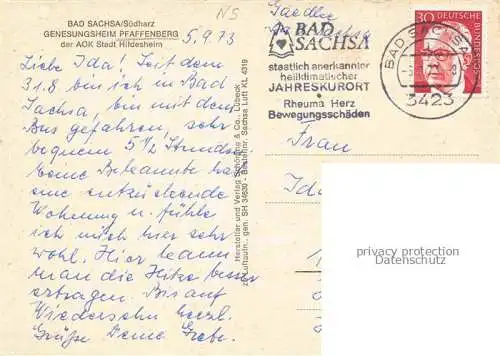 NS
BAD SACHSA/Südharz
GENESUNGSHEIM PFAFFENBERG
der AOK Stadt Hildesheim
5.9.73
Liebe Ida! Seit dem
31.8 bin ich in Bad
Sachsa, bin mit dem
Bus gefahren, sehr
bequem 5 1/2 Stunden
eine Bekannte
eine entzückende
Wohnung u. fühle
ich mich hier sehr
wohl. Hier kann
man die Hitze besser
ertragen. Bis auf
Wiedersehn herzl.
Grüße Deine Grete.
Hersteller und Verlag Schöning & Co., Lübeck
gen. SH 34630 - Bestellnr. Sachsa Luft KL 4319
BAD
SACHSA
staatlich anerkannter
heilklimatischer
JAHRESKURORT
Rheuma Herz
Bewegungsschäden
BAD SACHSA
3423
30 DEUTSCHE
BUNDESPOST
Frau
privacy protection
Datenschutz